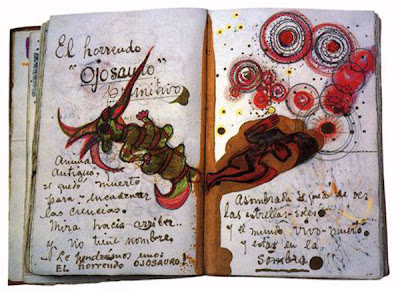 El horrendo
"OJOSAURO"
primitivo
Animal
Antiguo,
el quedó muerto
para encadenar
las ciencias.
Mira hacia arriba
y no tiene nombre.
Le pondremos uno:
EL HORRENDO OJOSAURO!
Asombrada se quedó de ver
las estrellas-soles
y el mundo vivo-muerto
y estar en la
sombra